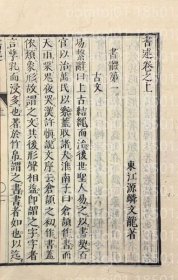 書述卷之上
東江源鱗文龍著
書第一
古文
易繫辭曰上古結繩而治後世聖人易之以書契百
官以治萬民以察蓋取諸夬淮南子曰倉頡作書而
天雨粟鬼夜哭漢許慎說文序云倉頡之初作書蓋
依類象形故謂之文其後形聲相益即謂之字字者
言孳乳而浸多也著於竹帛謂之書書者如也以迄